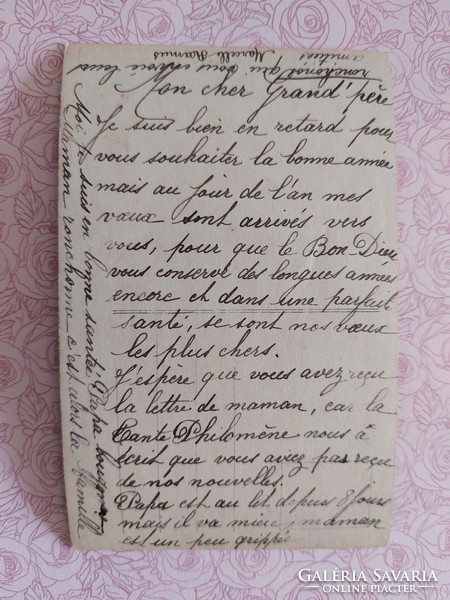 Mon cher Grand'père
Je suis bien en retard pour
vous souhaiter la bonne année
mais au Jour de l'an mes
vœux sont arrivés vers
vous, pour que le Bon Dieu
vous conserve des longues années
encore et dans une parfait
santé, se sont nos vœux
les plus chers.
J'espère que vous avez reçu
la lettre de maman, car la
Tante Philomène nous à
écrit que vous avez pas reçu
de nos nouvelles.
Papa est au let depuis 8 jours
mais il va mieu, maman
est un peu grippée
Moi je suis en bonne santée Papa
Maman ronchonne c'est alors la famille
ronchonot qui vous envoie leurs
amitiées
Marcelle Ramus
GALÉRIA SAVARIA
ONLINE PIACTÉR